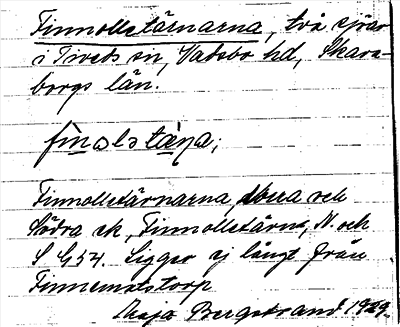 Finnolletärnarna, två sjöar
i Tiveds sn, Vadsbo hd, Skara-
borgs län.
finɔlətæ̀ɳa;
Finnolletärnarna, och
Södra ek, Finnolletärna, N. och
S G54. Ligger ej långt från
Finnemotorp
Maja Bergstrand 1929.